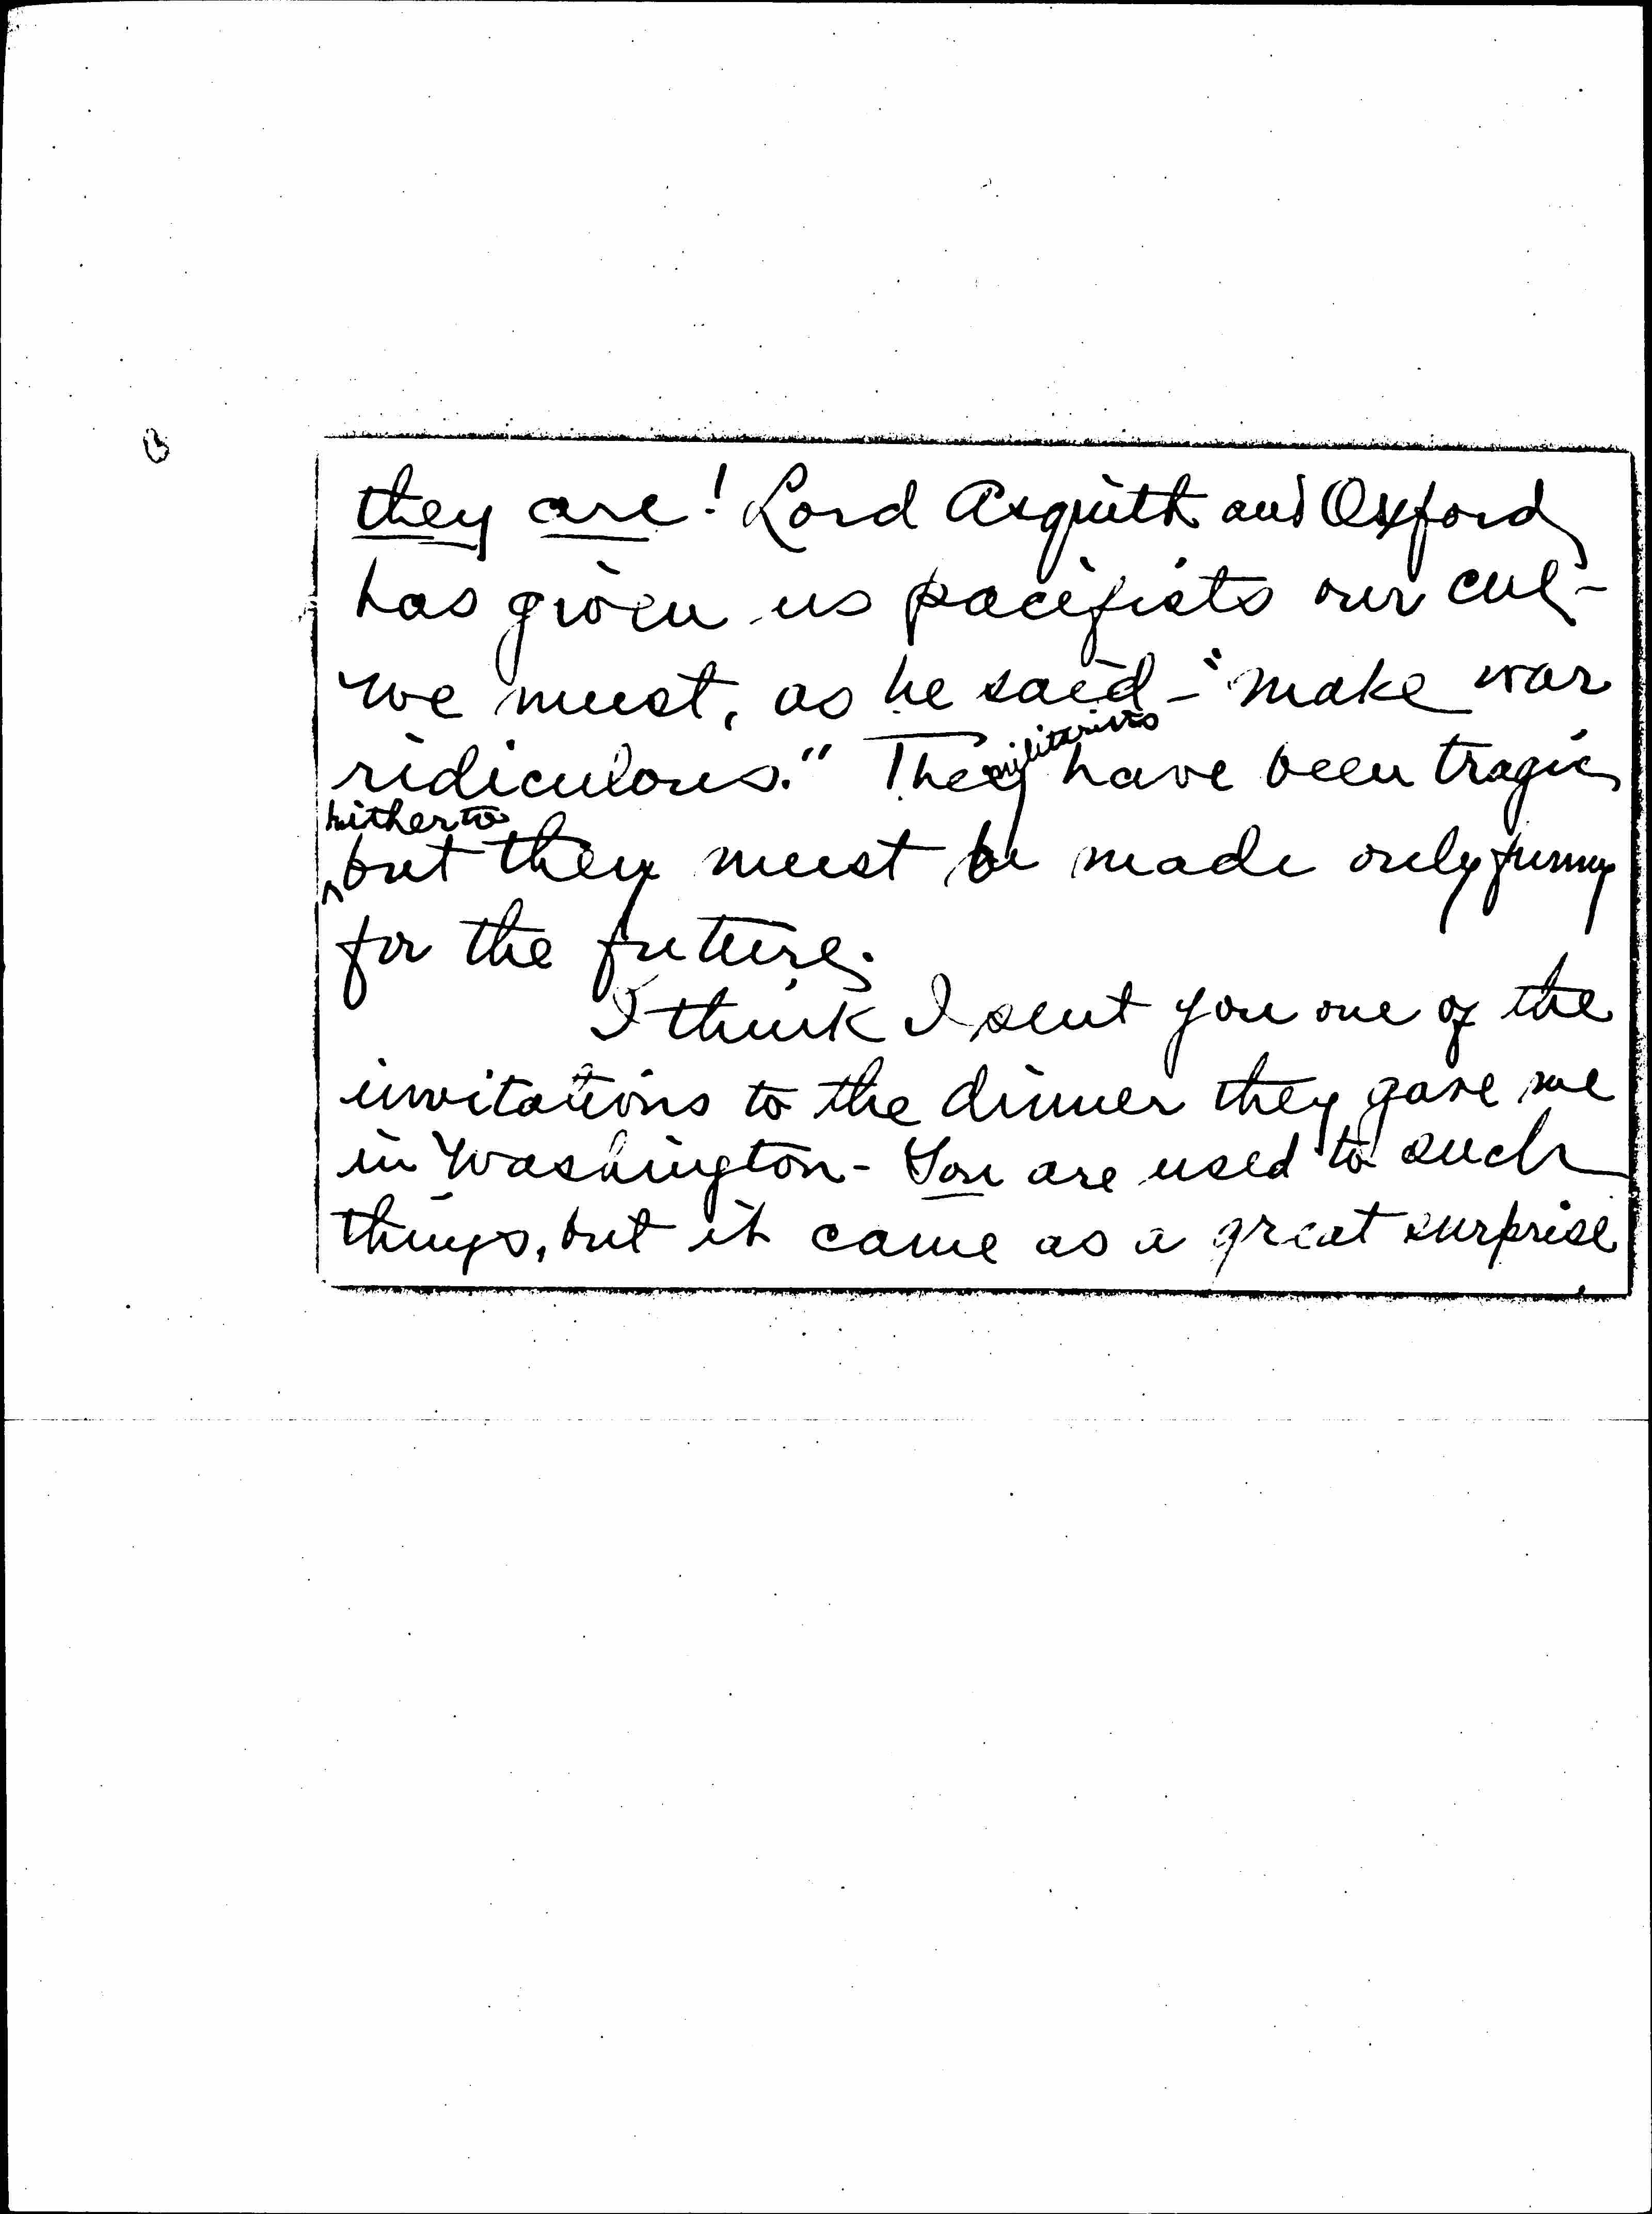 they are! Lord Asquith and Oxford
has given us pacifists our cue -
We must, as he said - "make war
ridiculous." They militarists have been tragic
hitherto
but they must be made only funny
for the future.
I think I sent you one of the
invitations to the dinner they gave me
in Washington - You are used to such
things, but it came as a great surprise